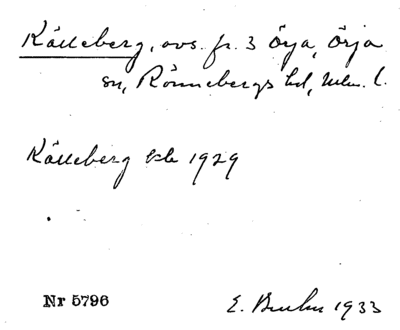 Källeberg, avs. fr. 3 Örja, Örja
sn, Rönnebergs hd, Mlm. l.
Källeberg 1929
Nr 5796
E. Bruhn 1933